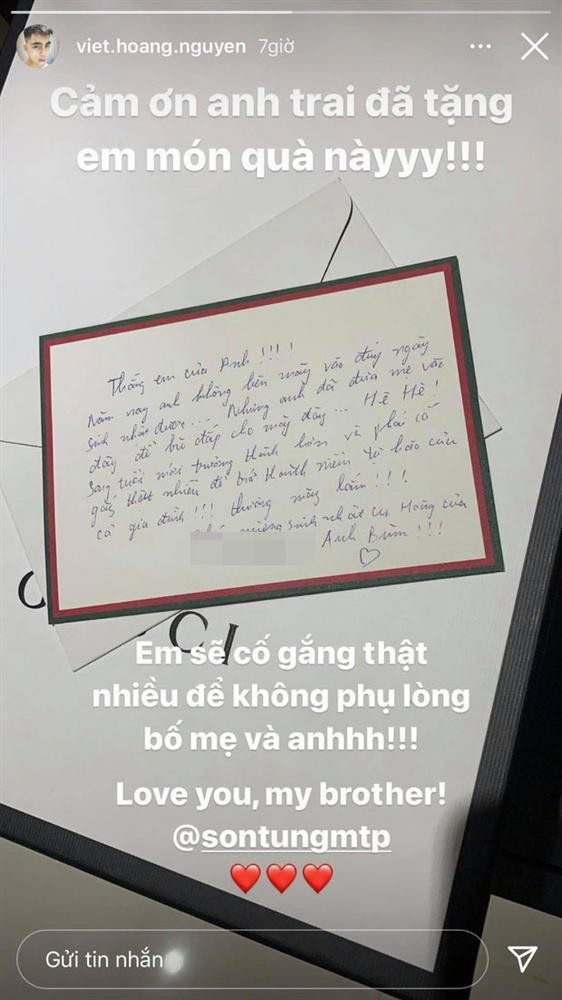 viet.hoang.nguyen 7giờ
Cảm ơn anh trai đã tặng
em món quà nàyyy!!!
Thằng em của Anh !!!!
Năm nay anh không bên mày vào đúng ngày
sinh nhật được... Nhưng anh đã đưa mẹ vào
đây để bù đắp cho mày đây... Hê Hê!
Sang tuổi mới trưởng thành hơn và phải cố
gắng thật nhiều để trở thành niềm tự hào của
cả gia đình!!! thương mày lắm!!!
mừng sinh nhật cu Hoàng của
Anh Bùm!!!
CI
Em sẽ cố gắng thật
nhiều để không phụ lòng
bố mẹ và anhhh!!!
Love you, my brother!
@sontungmtp
Gửi tin nhắn